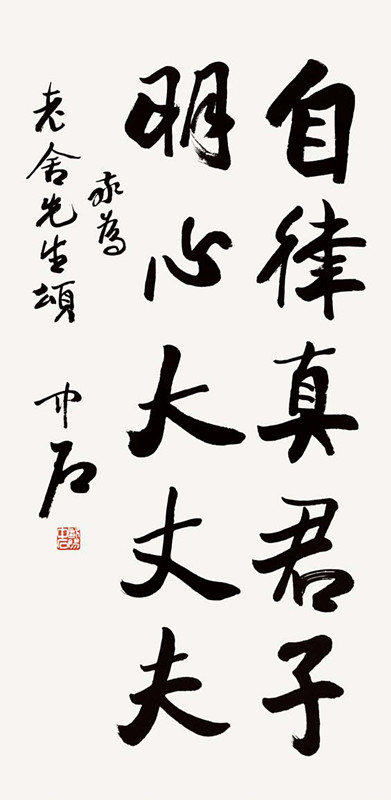 自律真君子
明心大丈夫
為
老舍先生頌
中石
歐陽中石